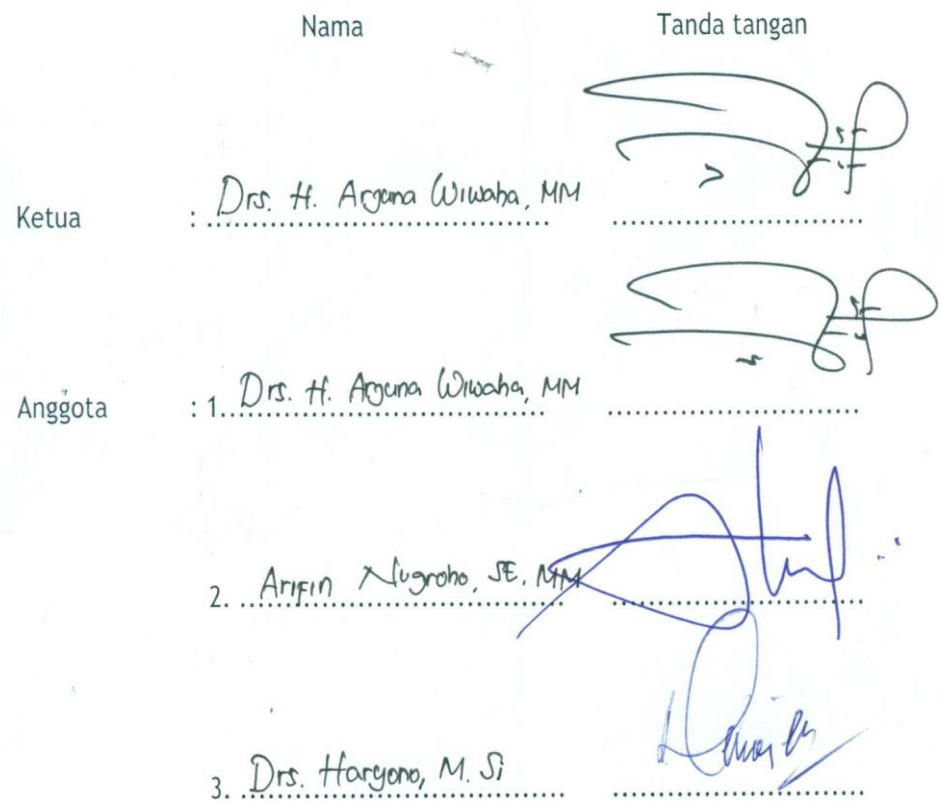 Nama Tanda tangan
Ketua : Drs. H. Arjuna Wiwaha, MM
Anggota : 1. Drs. H. Arjuna Wiwaha, MM
2. Arifin Nugroho, SE, MM
3. Drs. Haryono, M. Si